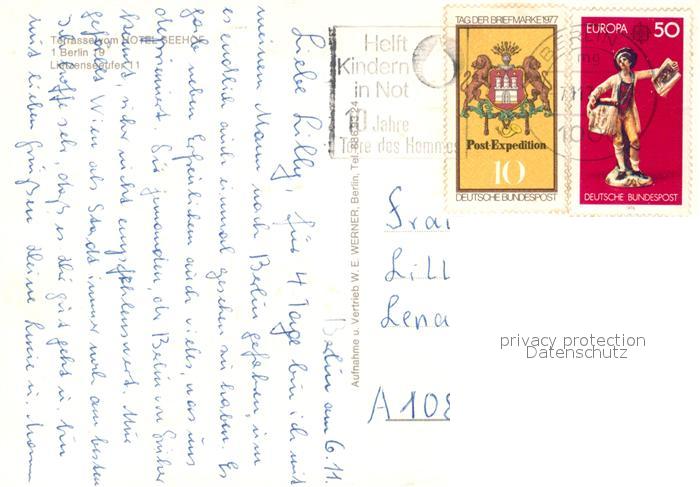 Terrasse vom HOTEL SEEHOF
1 Berlin 19
Lietzenseeufer 11
Aufnahme u. Vertrieb W. E. WERNER, Berlin, Tel. 886 33 24
Helft
Kindern
in Not
10 Jahre
Terre des Hommes
TAG DER BRIEFMARKE 1977
Post-Expedition
10
DEUTSCHE BUNDESPOST
EUROPA 50
DEUTSCHE BUNDESPOST
BERLIN
Berlin am 6.11.
Liebe Lilly, für 4 Tage bin ich mit
meinem Mann nach Berlin gefahren, um
es endlich auch einmal gesehen zu haben. Es
gab neben Erfreulichem auch vieles, was uns
deprimiert. Für jemanden, der Berlin von früher
kennt, sicher nicht empfehlenswert. Mir
gefällt Wien als Stadt immer noch am besten
Ich hoffe sehr, daß es Dir gut geht u. bin
mit lieben Grüßen Deine u. Mann
Frau
Lill
Lena
A 108
privacy protection
Datenschutz